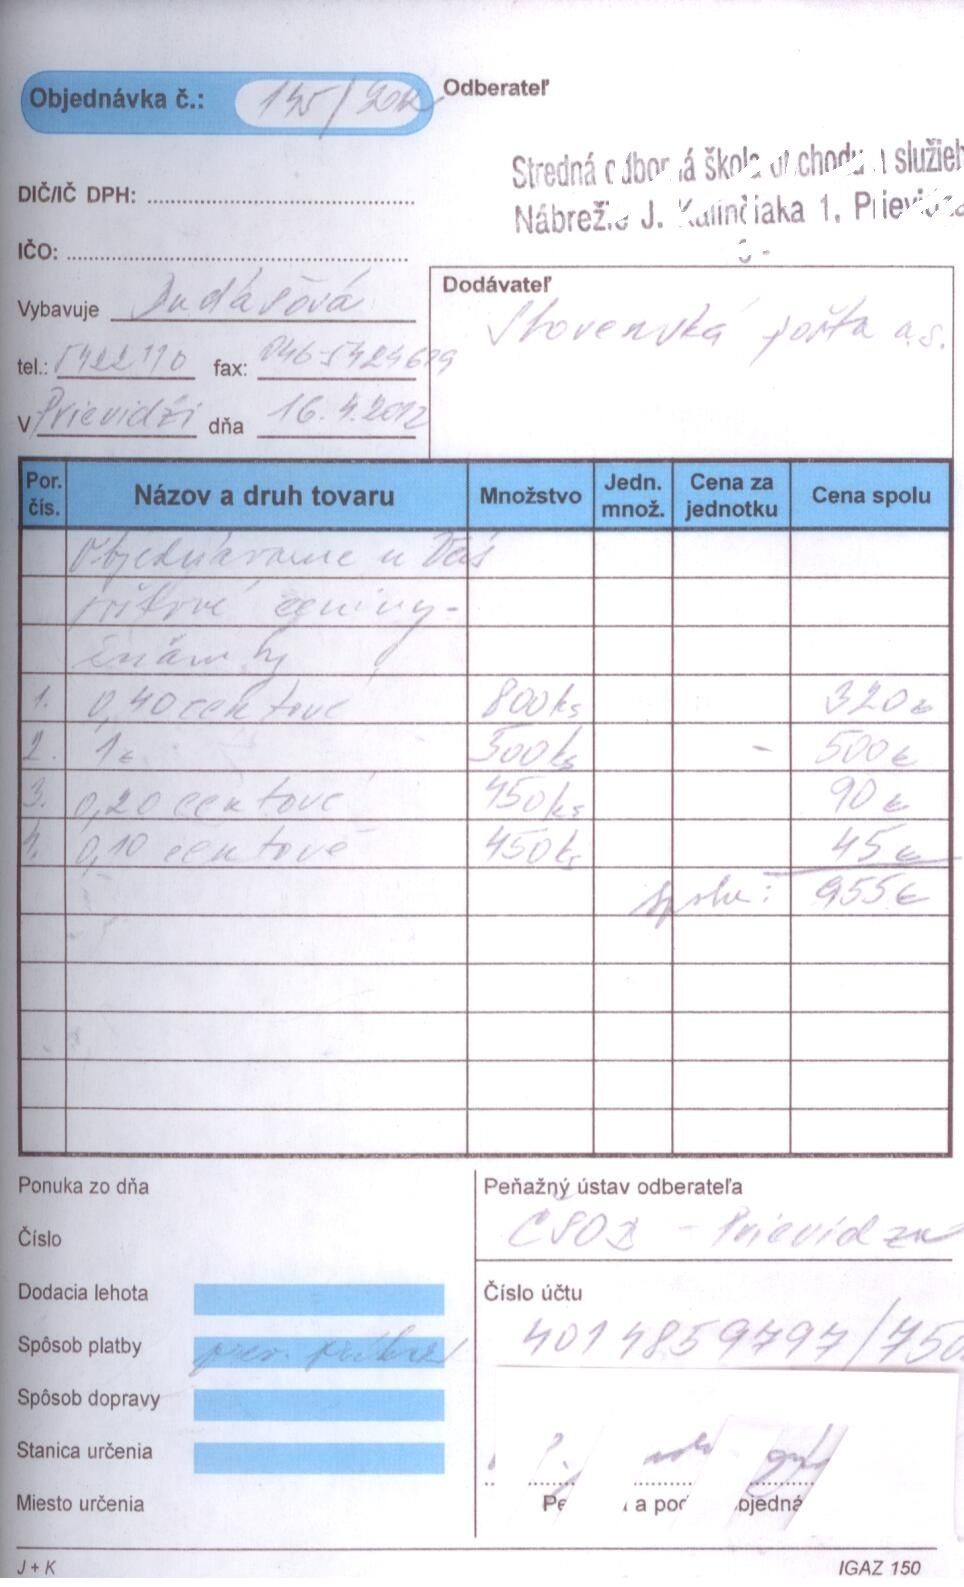 Objednávka č.: /2012
Odberateľ
Stredná odborná škola obchodu a služieb
Nábrežie J. Kalinčiaka 1, Prievidza
DIČ/IČ DPH:
IČO:
Vybavuje Dudášová
Dodávateľ
Slovenská pošta a.s.
tel.: 5422110 fax: 046-5424619
V Prievidzi dňa 16.4.2012
Por. čís. Názov a druh tovaru Množstvo Jedn. množ. Cena za jednotku Cena spolu
Objednávame u Vás
poštové ceniny -
známky
1. 0,40 centové 800ks 320€
2. 1€ 500ks - 500€
3. 0,20 centové 450ks 90€
4. 0,10 centové 450ks 45€
Spolu: 955€
Ponuka zo dňa
Peňažný ústav odberateľa
ČSOB - Prievidza
Číslo
Dodacia lehota
Číslo účtu
4014859797/750
Spôsob platby
Spôsob dopravy
Stanica určenia
Miesto určenia
Pe a pod objedná
J + K
IGAZ 150